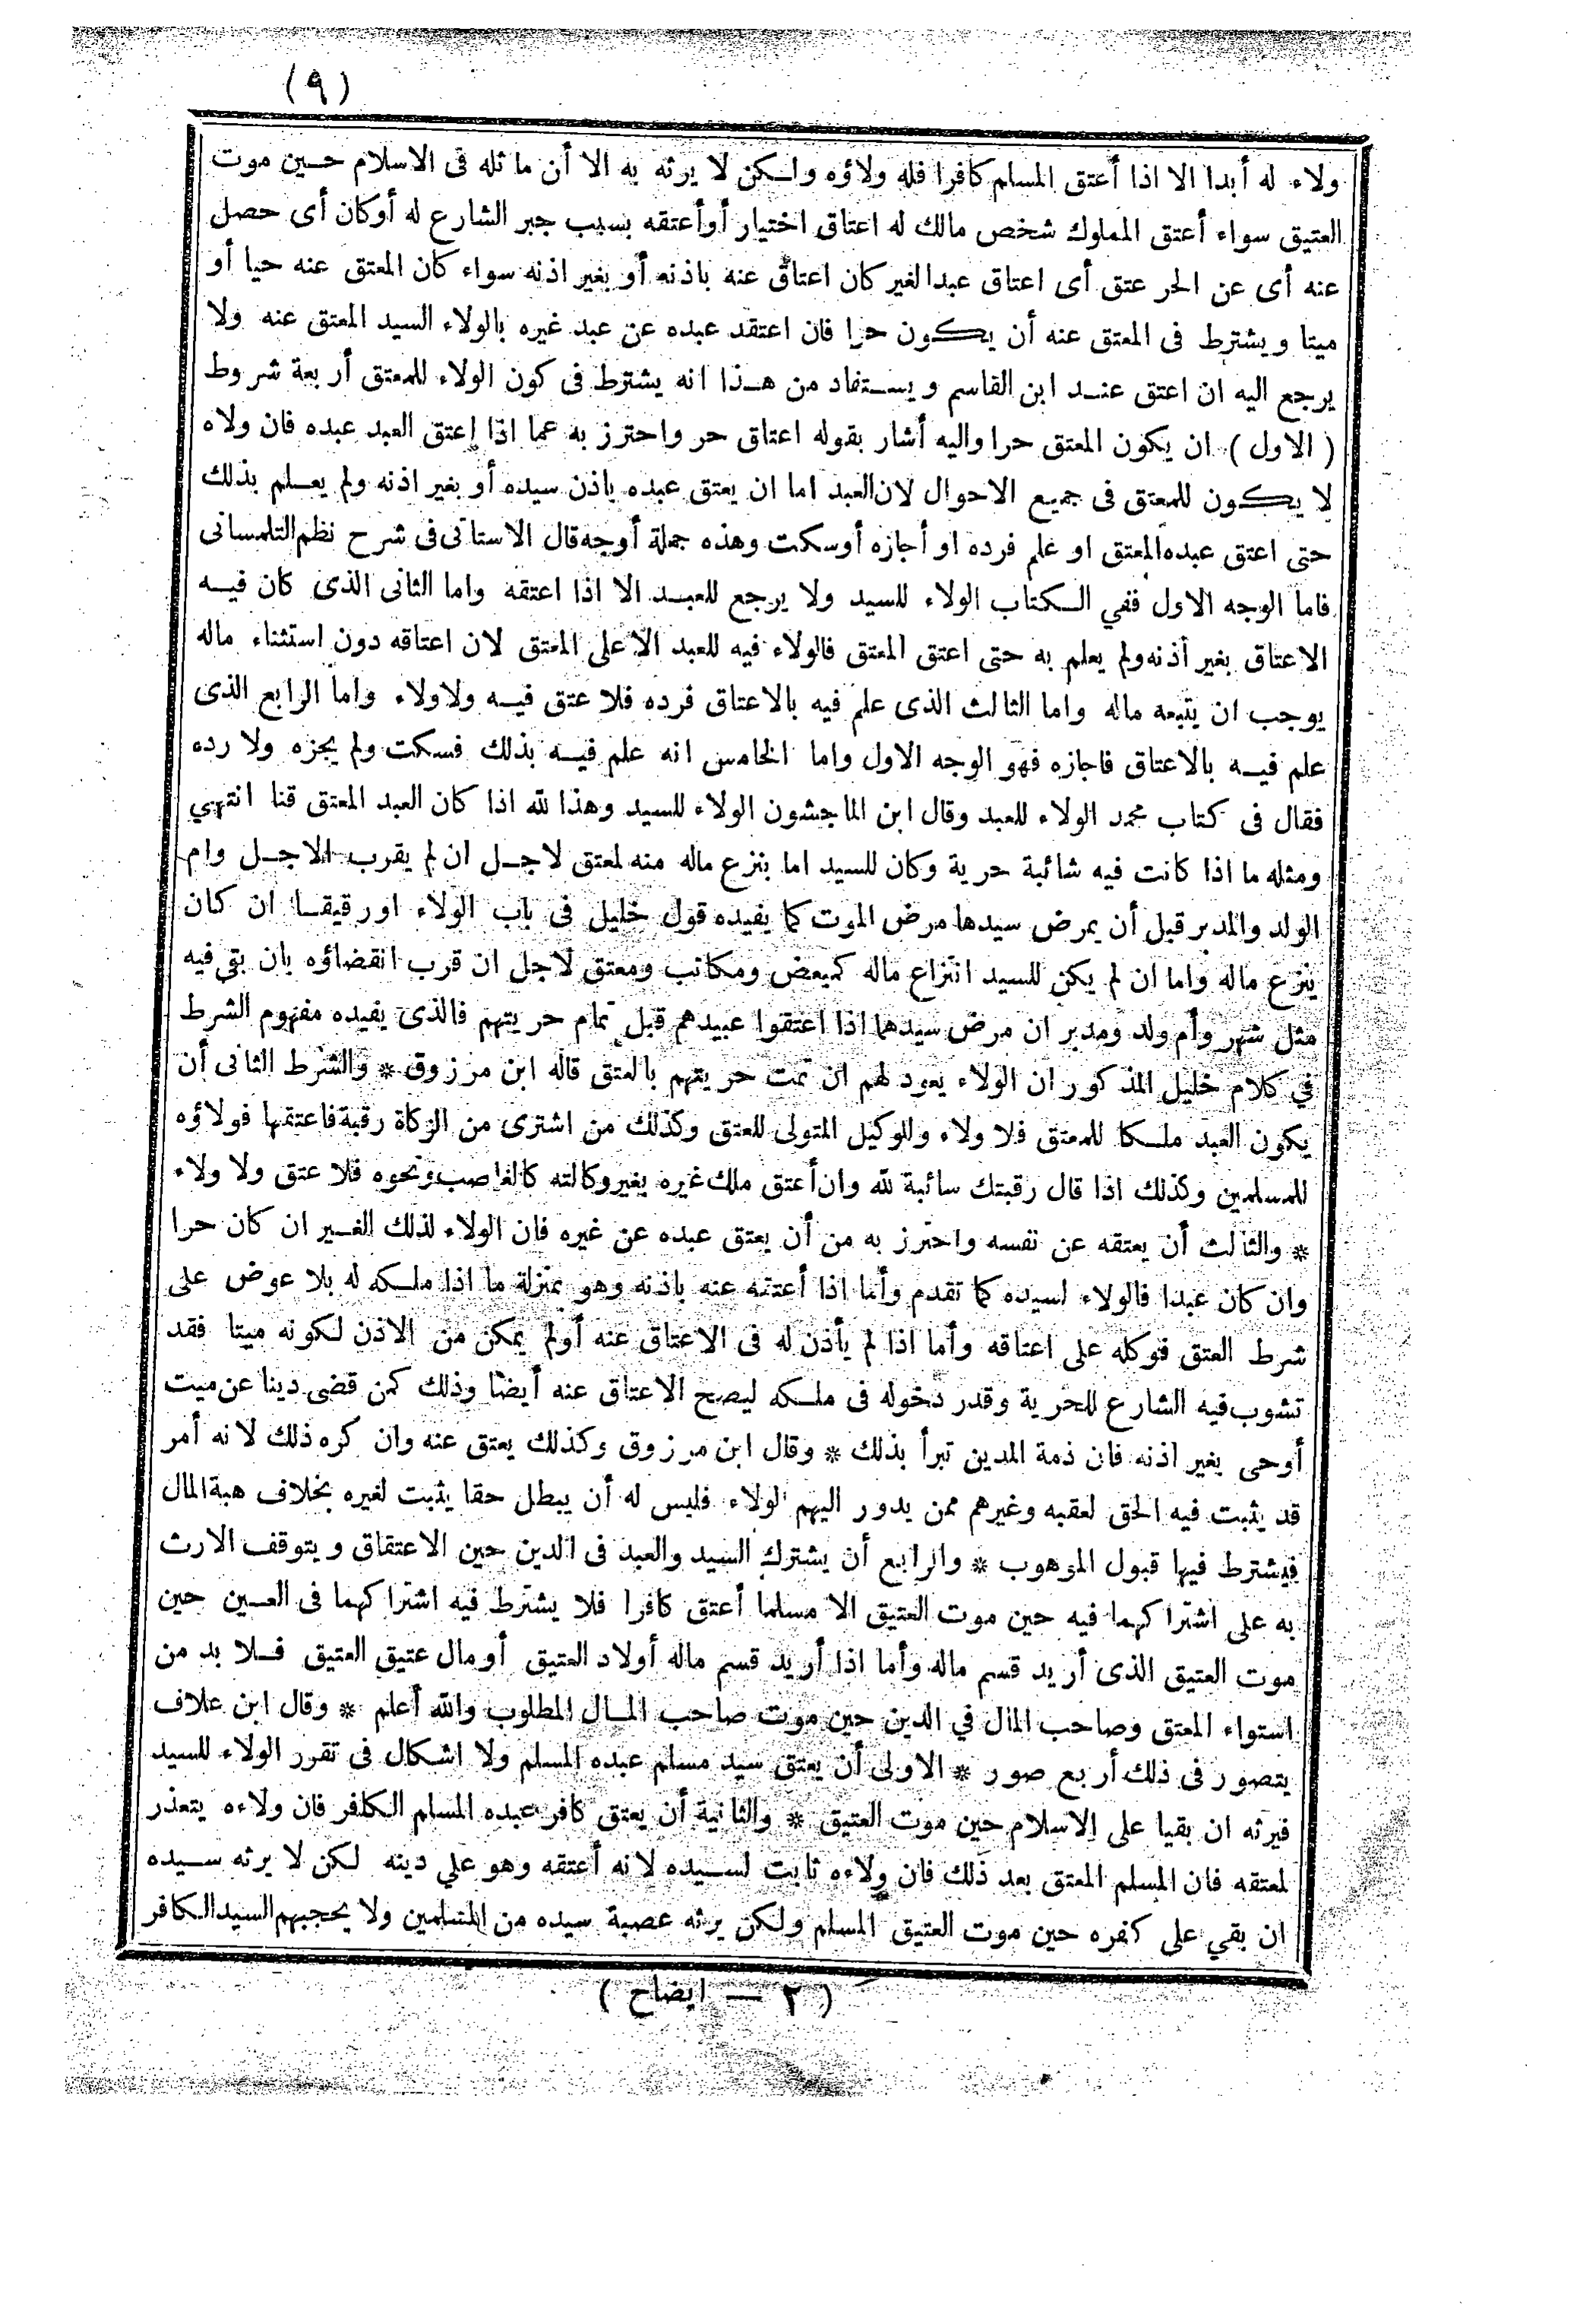 (٩)
ولاء له أبدا الا اذا أعتق المسلم كافرا فله ولاؤه ولكن لا يرثه به الا أن ماثله فى الاسلام حين موت
العتيق سواء أعتق المملوك شخص مالك له اعتاق اختيار أو أعتقه بسبب جبر الشارع له أو كان أى حصل
عنه أى عن الحر عتق أى اعتاق عبد الغير كان اعتاق عنه باذنه أو بغير اذنه سواء كان المعتق عنه حيا أو
ميتا ويشترط فى المعتق عنه أن يكون حرا فان اعتقد عبده عن عبد غيره بالولاء السيد المعتق عنه ولا
يرجع اليه ان اعتق عند ابن القاسم ويستفاد من هذا انه يشترط فى كون الولاء للمعتق أربعة شروط
(الاول) ان يكون المعتق حرا واليه أشار بقوله اعتاق حر واحترز به عما اذا اعتق العبد عبده فان ولاه
لا يكون للمعتق فى جميع الاحوال لان العبد اما ان يعتق عبده باذن سيده أو بغير اذنه ولم يعلم بذلك
حتى اعتق عبده المعتق او علم فرده او أجازه أوسكت وهذه جملة أوجه قال الاستاتى فى شرح نظم التلمسانى
فاما الوجه الاول ففي الكتاب الولاء للسيد ولا يرجع للعبد الا اذا اعتقه واما الثانى الذى كان فيه
الاعتاق بغير أذنه ولم يعلم به حتى اعتق المعتق فالولاء فيه للعبد الاعلى المعتق لان اعتاقه دون استثناء ماله
يوجب ان يتبعه ماله واما الثالث الذى علم فيه بالاعتاق فرده فلا عتق فيه ولا ولاء واما الرابع الذى
علم فيه بالاعتاق فاجازه فهو الوجه الاول واما الخامس انه علم فيه بذلك فسكت ولم يجزه ولا رده
فقال فى كتاب محمد الولاء للعبد وقال ابن الماجشون الولاء للسيد وهذا لله اذا كان العبد المعتق قنا انتهي
ومثله ما اذا كانت فيه شائبة حرية وكان للسيد اما بنزع ماله منه لمعتق لاجل ان لم يقرب الاجل وام
الولد والمدبر قبل أن يمرض سيدها مرض الموت كما يفيده قول خليل فى باب الولاء او رقيقا ان كان
ينزع ماله واما ان لم يكن للسيد انتزاع ماله كمبعض ومكاتب ومعتق لاجل ان قرب انقضاؤه بان بقى فيه
مثل شهر وأم ولد ومدبر ان مرض سيدهما اذا اعتقوا عبيدهم قبل تمام حريتهم فالذى يفيده مفهوم الشرط
في كلام خليل المذكور ان الولاء يعود لهم ان تمت حريتهم بالعتق قاله ابن مرزوق * والشرط الثانى أن
يكون العبد ملكا للمعتق فلا ولاء وللوكيل المتولى للعتق وكذلك من اشترى من الزكاة رقبة فاعتقها فولاؤه
للمسلمين وكذلك اذا قال رقبتك سائبة لله وان أعتق ملك غيره بغير وكالته كالغاصب ونحوه فلا عتق ولا ولاء
* والثالث أن يعتقه عن نفسه واحترز به من أن يعتق عبده عن غيره فان الولاء لذلك الغير ان كان حرا
وان كان عبدا فالولاء لسيده كما تقدم وأما اذا أعتقه عنه باذنه وهو بمنزلة ما اذا ملكه له بلا عوض على
شرط العتق فوكله على اعتاقه وأما اذا لم يأذن له فى الاعتاق عنه أولم يمكن من الاذن لكونه ميتا فقد
تشوب فيه الشارع للحرية وقدر دخوله فى ملكه ليصح الاعتاق عنه أيضا وذلك كمن قضى دينا عن ميت
أوحى بغير اذنه فان ذمة المدين تبرأ بذلك * وقال ابن مرزوق وكذلك يعتق عنه وان كره ذلك لانه أمر
قد يثبت فيه الحق لعقبه وغيرهم ممن يدور اليهم الولاء فليس له أن يبطل حقا يثبت لغيره بخلاف هبة المال
فيشترط فيها قبول الموهوب * والرابع أن يشترك السيد والعبد فى الدين حين الاعتقاق ويتوقف الارث
به على اشتراكهما فيه حين موت العتيق الا مسلما أعتق كافرا فلا يشترط فيه اشتراكهما فى العين حين
موت العتيق الذى أريد قسم ماله وأما اذا أريد قسم ماله أولاد العتيق أومال عتيق العتيق فلا بد من
استواء المعتق وصاحب المال في الدين حين موت صاحب المال المطلوب والله أعلم * وقال ابن علاف
يتصور فى ذلك أربع صور * الاولى أن يعتق سيد مسلم عبده المسلم ولا اشكال فى تقرر الولاء للسيد
فيرثه ان بقيا على الاسلام حين موت العتيق * والثانية أن يعتق كافر عبده المسلم الكلفر فان ولاءه يتعذر
لمعتقه فان المسلم المعتق بعد ذلك فان ولاءه ثابت لسيده لانه أعتقه وهو علي دينه لكن لا يرثه سيده
ان بقي على كفره حين موت العتيق المسلم ولكن يرثه عصبة سيده من المسلمين ولا يحجبهم السيد الكافر
(٢ — ايضاح)